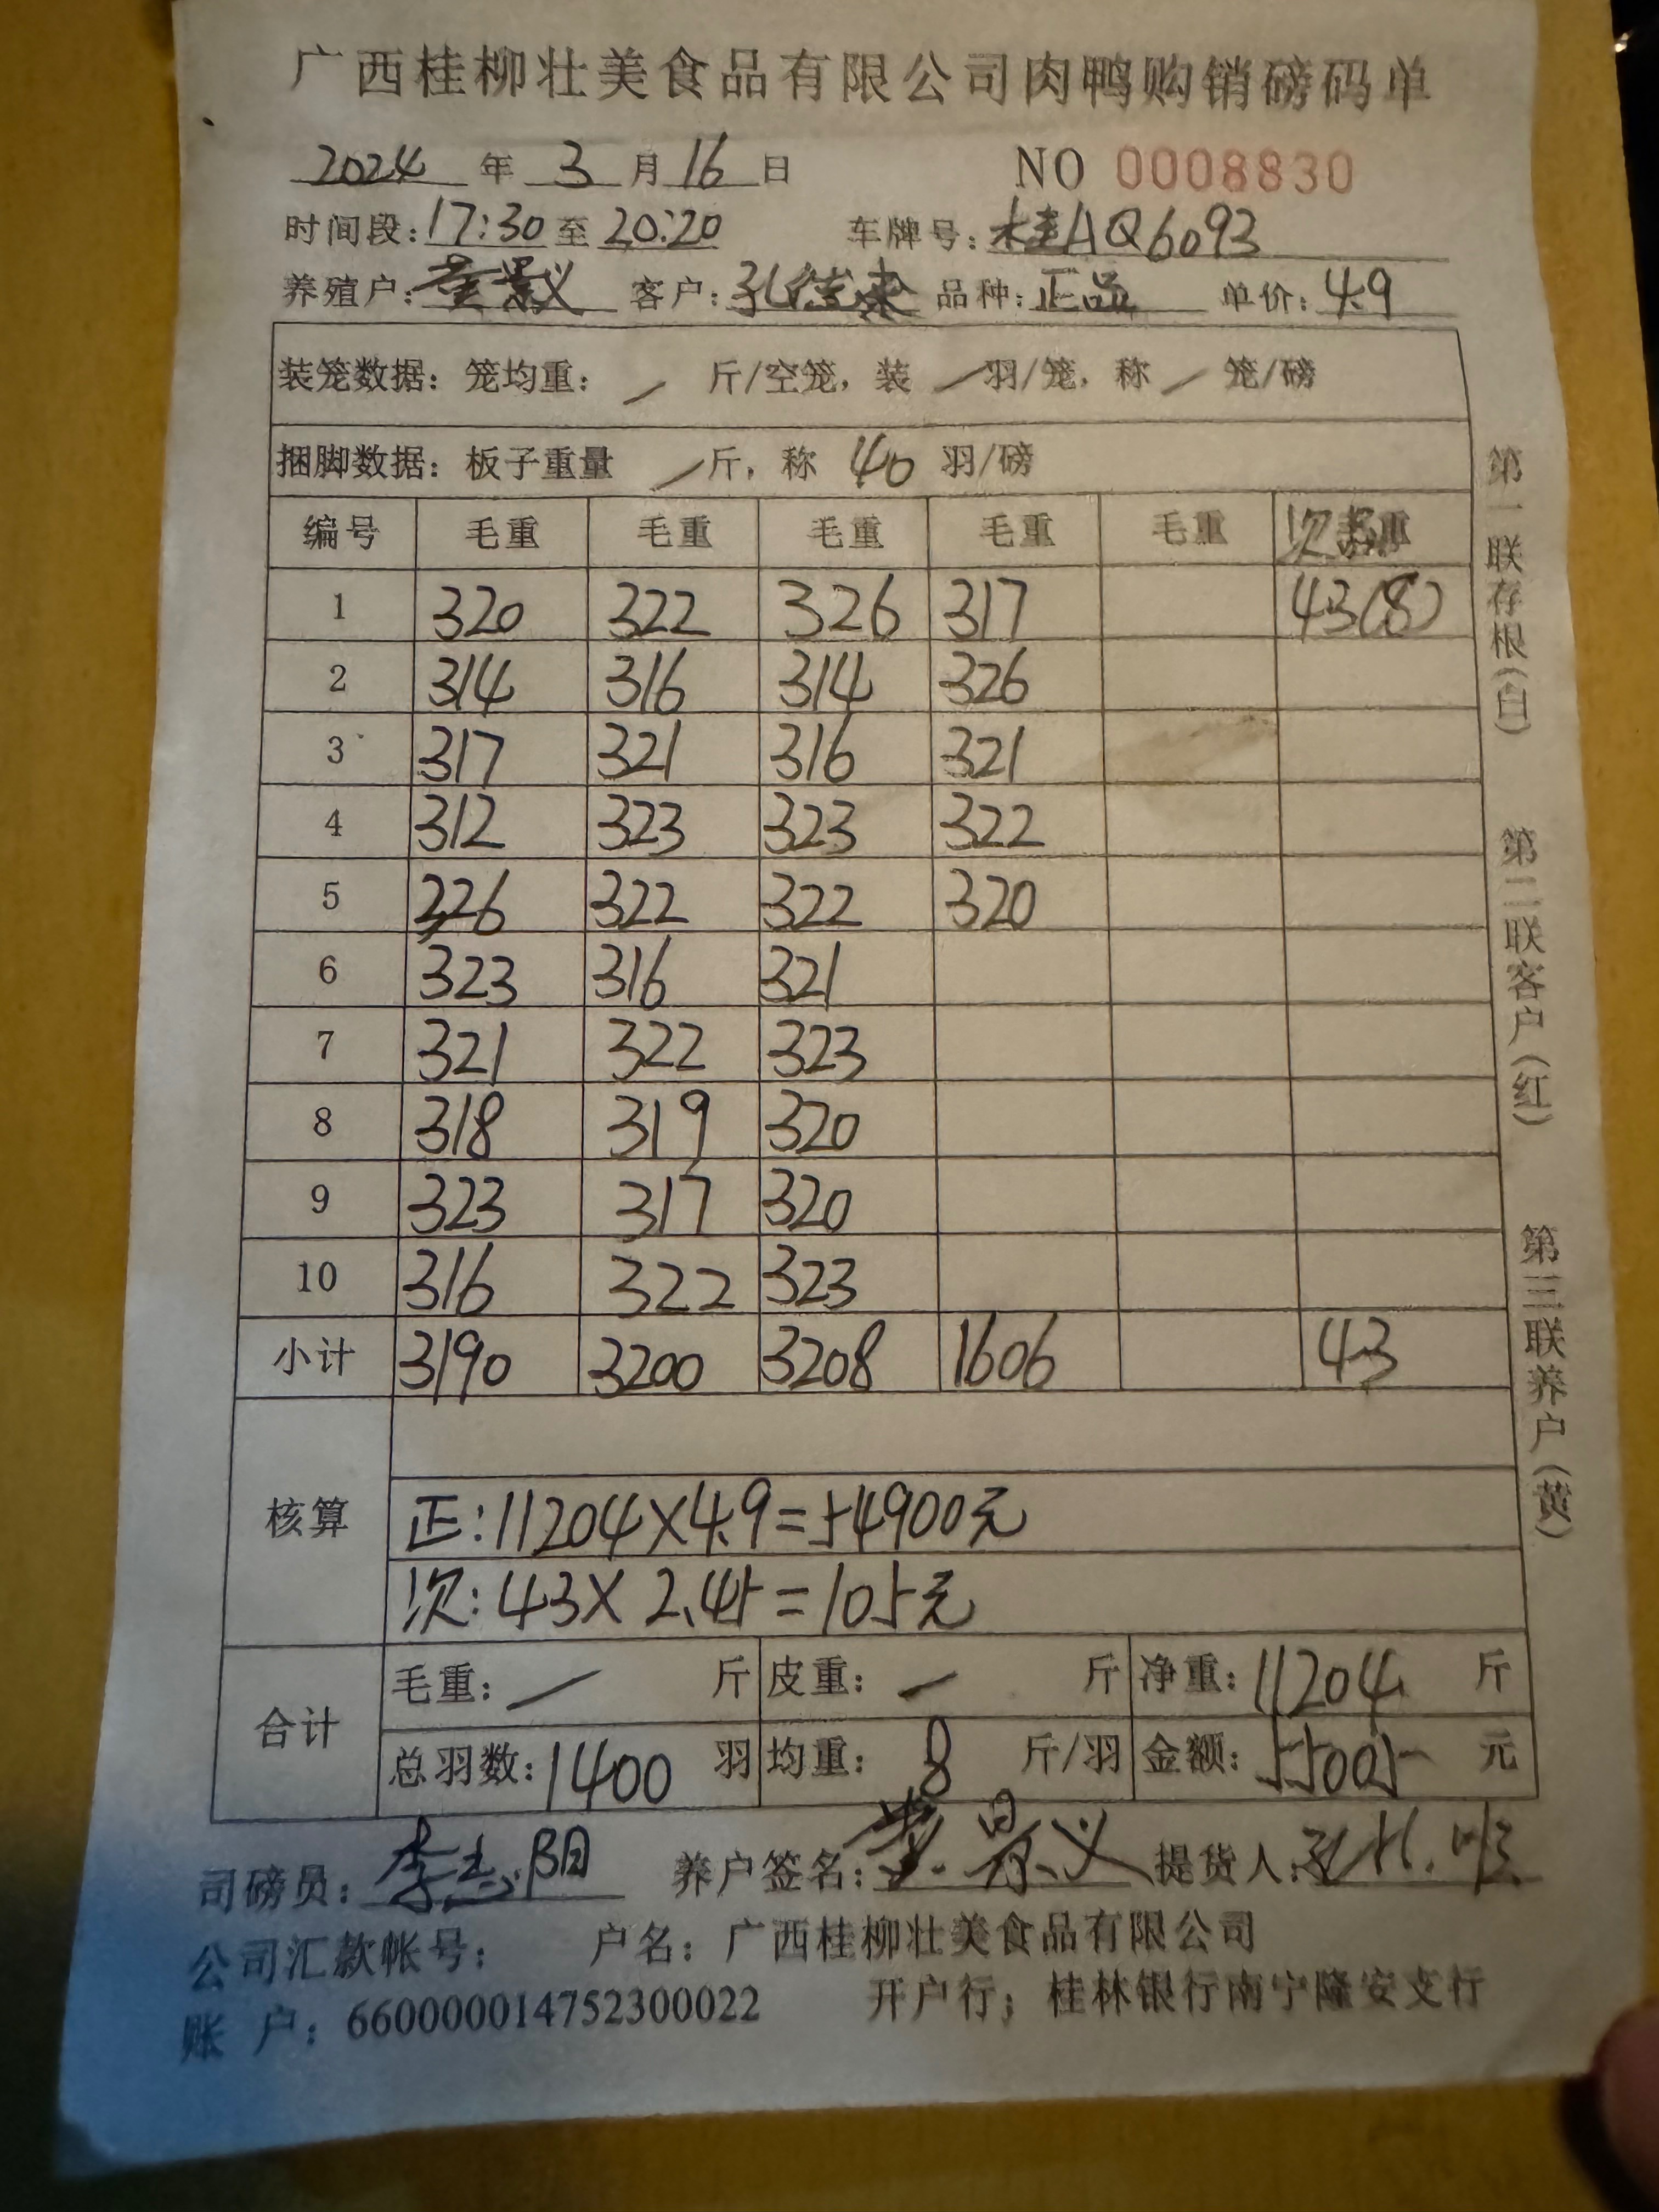 广西桂柳壮美食品有限公司肉鸭购销磅码单
2024 年 3 月 16 日 NO 0008830
时间段: 17:30 至 20:20 车牌号: 桂AQ6093
养殖户: 黄景义 客户: 孔 品种: 正品 单价: 4.9
装笼数据: 笼均重: / 斤/空笼, 装 / 羽/笼, 称 / 笼/磅
捆脚数据: 板子重量 / 斤, 称 40 羽/磅
编号 毛重 毛重 毛重 毛重 毛重 次品重
1 320 322 326 317 43(8)
2 314 316 314 326
3 317 321 316 321
4 312 323 323 322
5 326 322 322 320
6 323 316 321
7 321 322 323
8 318 319 320
9 323 317 320
10 316 322 323
小计 3190 3200 3208 1606 43
核算
正: 11204×4.9=54900元
次: 43×2.45=105元
合计
毛重: / 斤 皮重: / 斤 净重: 11204 斤
总羽数: 1400 羽 均重: 8 斤/羽 金额: 55005 元
司磅员: 李志阳 养户签名: 黄景义 提货人: 孔
公司汇款帐号: 户名: 广西桂柳壮美食品有限公司
账 户: 660000014752300022 开户行; 桂林银行南宁隆安支行
第一联存根(白)
第二联客户(红)
第三联养户(黄)